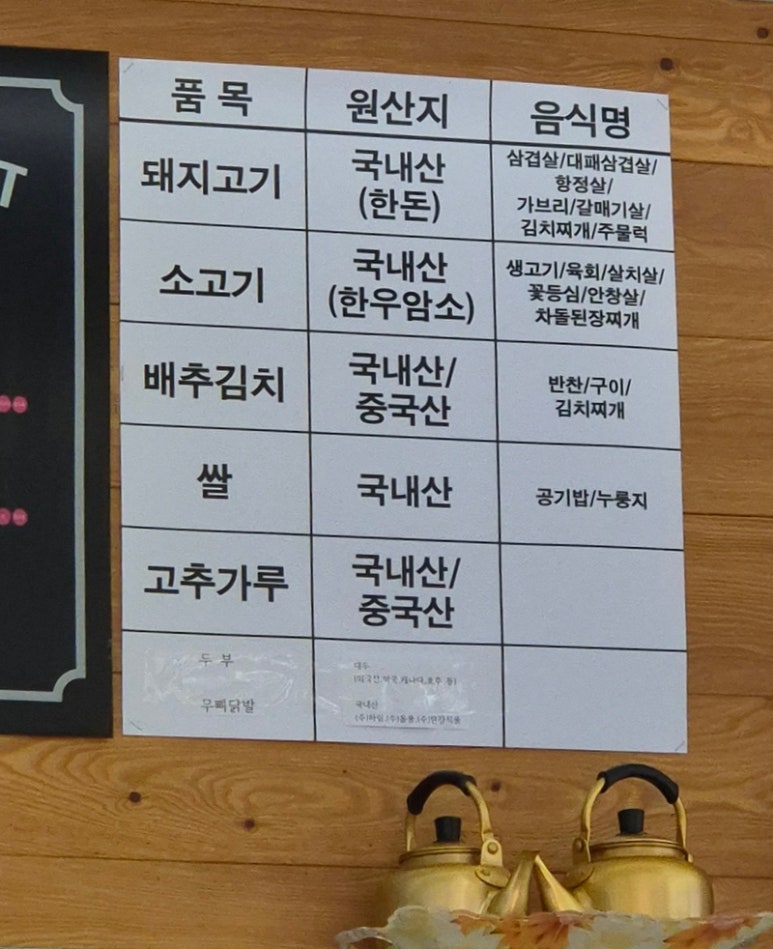 품 목 원산지 음식명
돼지고기 국내산 (한돈) 삼겹살/대패삼겹살/
항정살/
가브리/갈매기살/
김치찌개/주물럭
소고기 국내산 (한우암소) 생고기/육회/살치살/
꽃등심/안창살/
차돌된장찌개
배추김치 국내산/ 중국산 반찬/구이/
김치찌개
쌀 국내산 공기밥/누룽지
고추가루 국내산/ 중국산
두 부 대두
(외국산,미국,캐나다,호주 등)
무뼈닭발 국내산